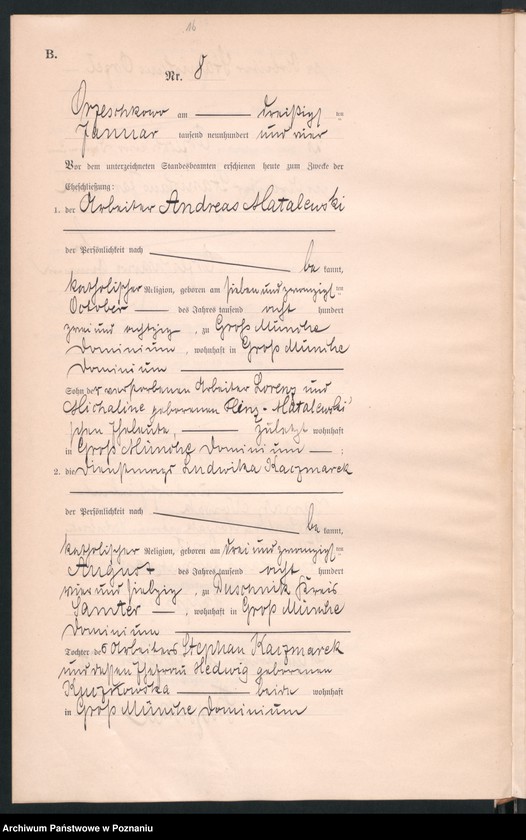 116
B.
Nr. 8
Orzeschkowo am dreißigsten
Januar tausend neunhundert und vier
Vor dem unterzeichneten Standesbeamten erschienen heute zum Zwecke der
Eheschließung:
1. der Arbeiter Andreas Matalewski
der Persönlichkeit nach
be kannt,
katholischer Religion, geboren am sieben und zwanzigsten
October des Jahres tausend acht hundert
zwei und achtzig , zu Groß Münche
Dominium , wohnhaft in Groß Münche
Dominium
Sohn der verstorbenen Arbeiter Lorenz und
Michaline geborenen Matalewski'
schen Eheleute, zuletzt wohnhaft
in Groß Münche Dominium :
2. die Dienstmagd Ludwika Kaczmarek
der Persönlichkeit nach
be kannt,
katholischer Religion, geboren am drei und zwanzigsten
August des Jahres tausend acht hundert
vier und siebzig , zu Duschnik Kreis
Samter , wohnhaft in Groß Münche
Dominium
Tochter des Arbeiters Stephan Kaczmarek
und dessen Ehefrau Hedwig geborenen
beide wohnhaft
in Groß Münche Dominium
Archiwum Państwowe w Poznaniu